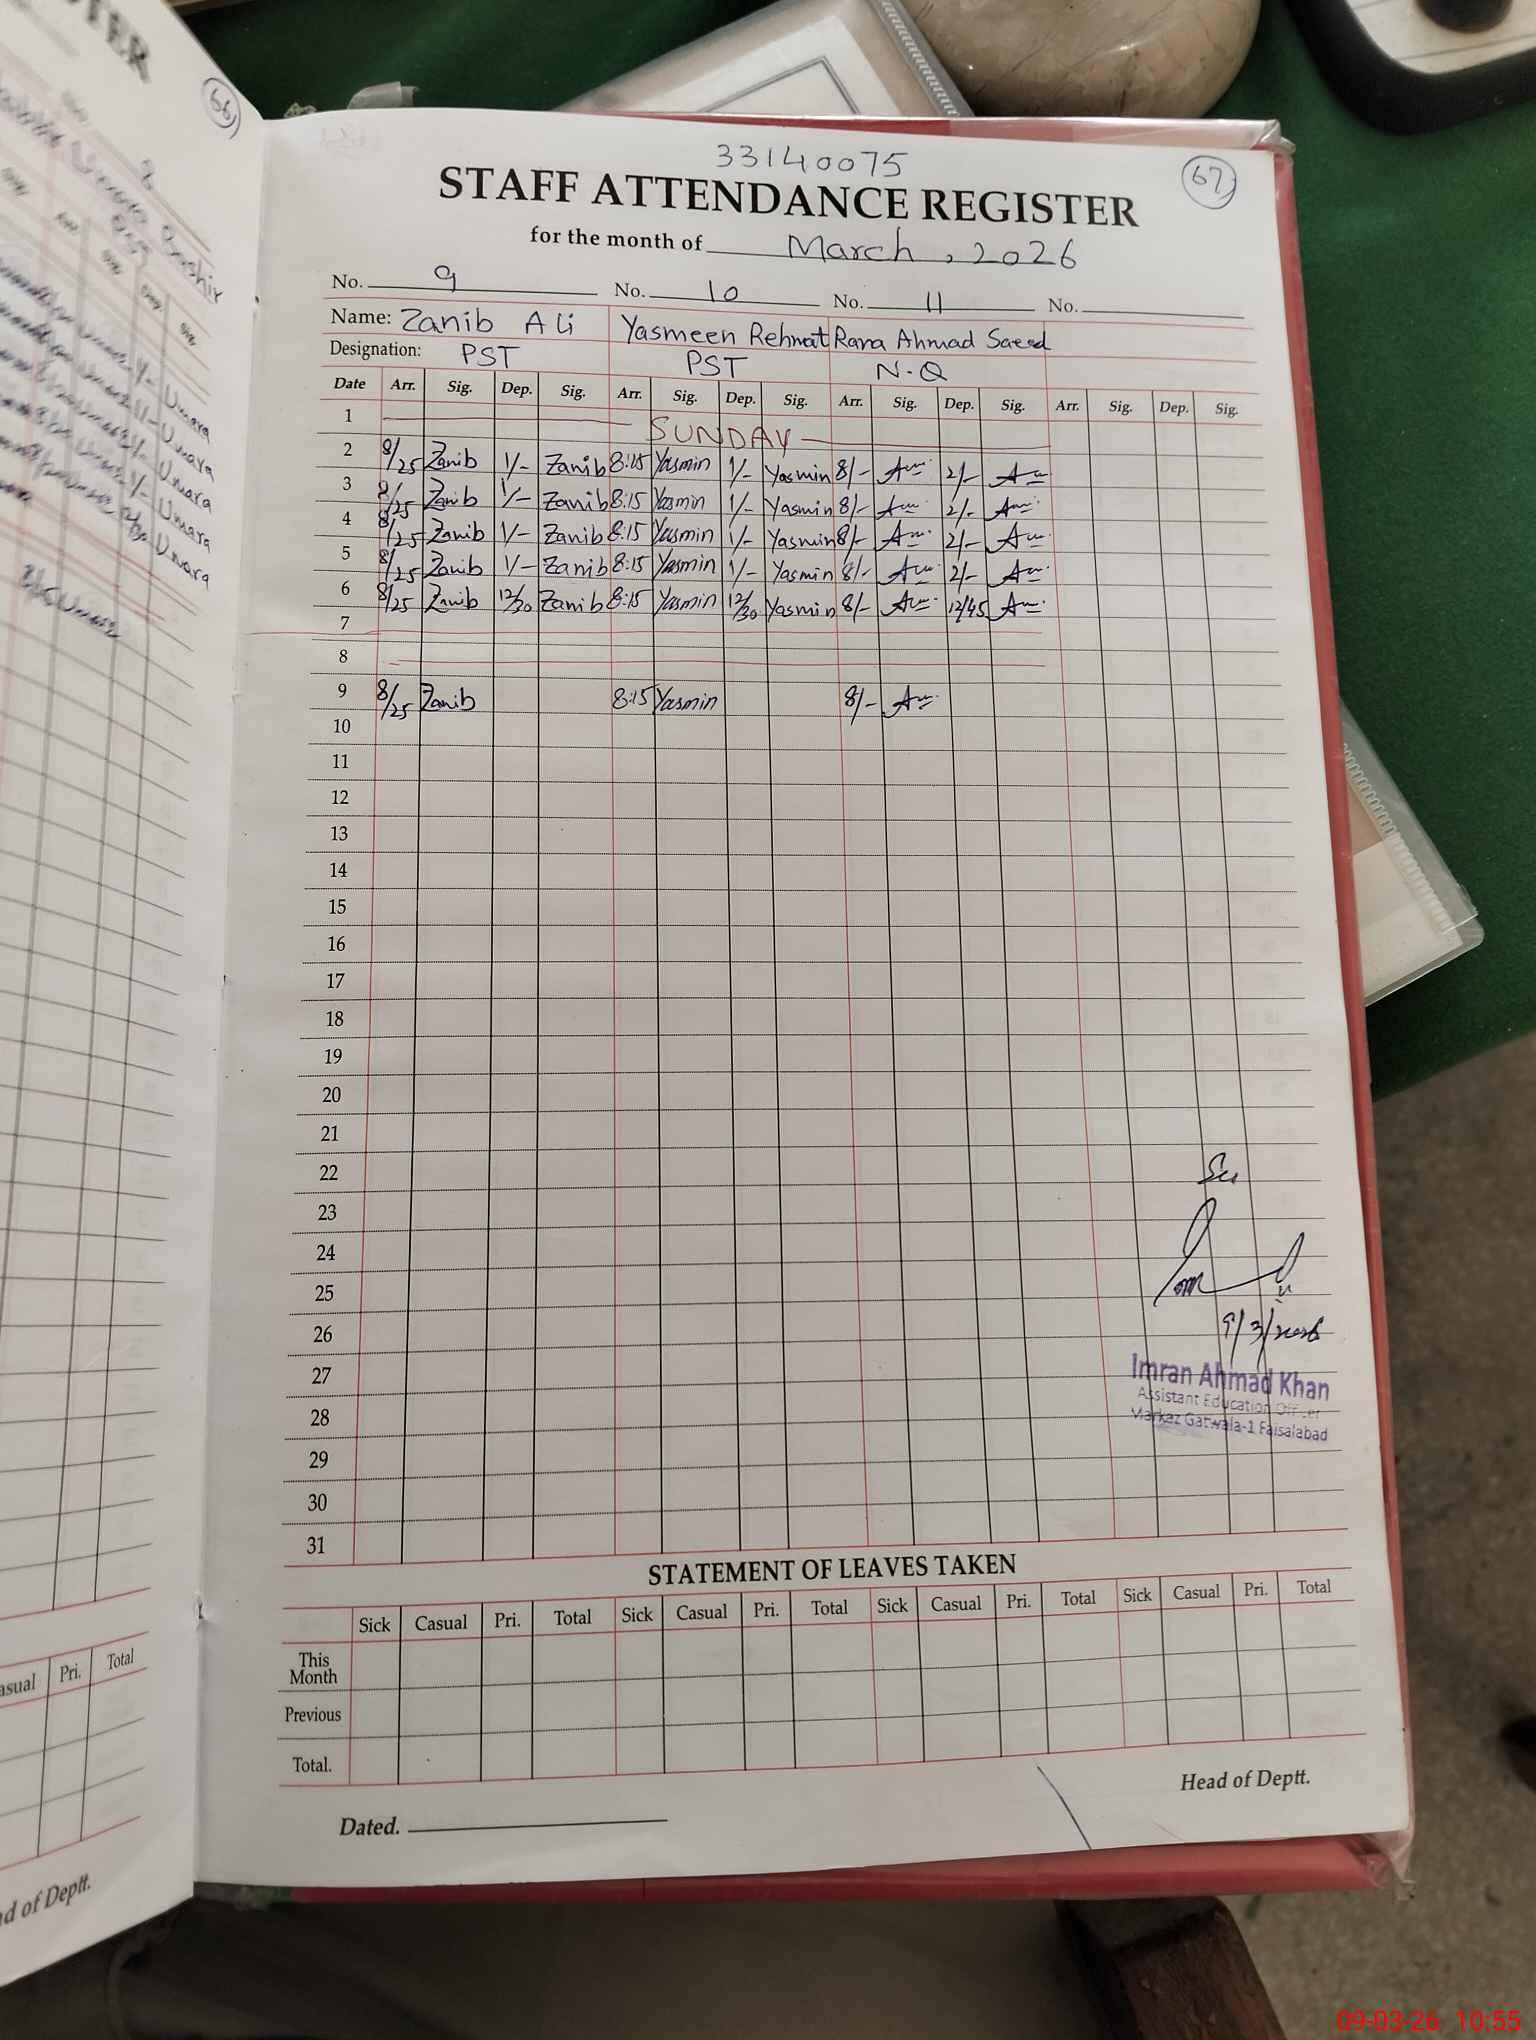 66
67
33140075
STAFF ATTENDANCE REGISTER
for the month of March, 2026
No. 9 No. 10 No. 11 No.
Name: Zanib Ali Yasmeen Rehmat Rana Ahmad Saeed
Designation: PST PST N.Q
Date Arr. Sig. Dep. Sig. Arr. Sig. Dep. Sig. Arr. Sig. Dep. Sig. Arr. Sig. Dep. Sig.
1 SUNDAY
2 8/25 Zanib 1/- Zanib 8:15 Yasmin 1/- Yasmin 8/- 2/-
3 8/25 Zanib 1/- Zanib 8:15 Yasmin 1/- Yasmin 8/- 2/-
4 8/25 Zanib 1/- Zanib 8:15 Yasmin 1/- Yasmin 8/- 2/-
5 8/25 Zanib 1/- Zanib 8:15 Yasmin 1/- Yasmin 8/- 2/-
6 8/25 Zanib 12/30 Zanib 8:15 Yasmin 12/30 Yasmin 8/- 12/45
7
8
9 8/25 Zanib 8:15 Yasmin 8/-
10
11
12
13
14
15
16
17
18
19
20
21
22
23
24
25
26 9/3/2026
27 Imran Ahmad Khan
Assistant Education Officer
28 Markaz Gatwala-1 Faisalabad
29
30
31
STATEMENT OF LEAVES TAKEN
Sick Casual Pri. Total Sick Casual Pri. Total Sick Casual Pri. Total Sick Casual Pri. Total
This
Month
Previous
Total.
Head of Deptt.
Dated.
Pri. Total
09-03-26 10:55